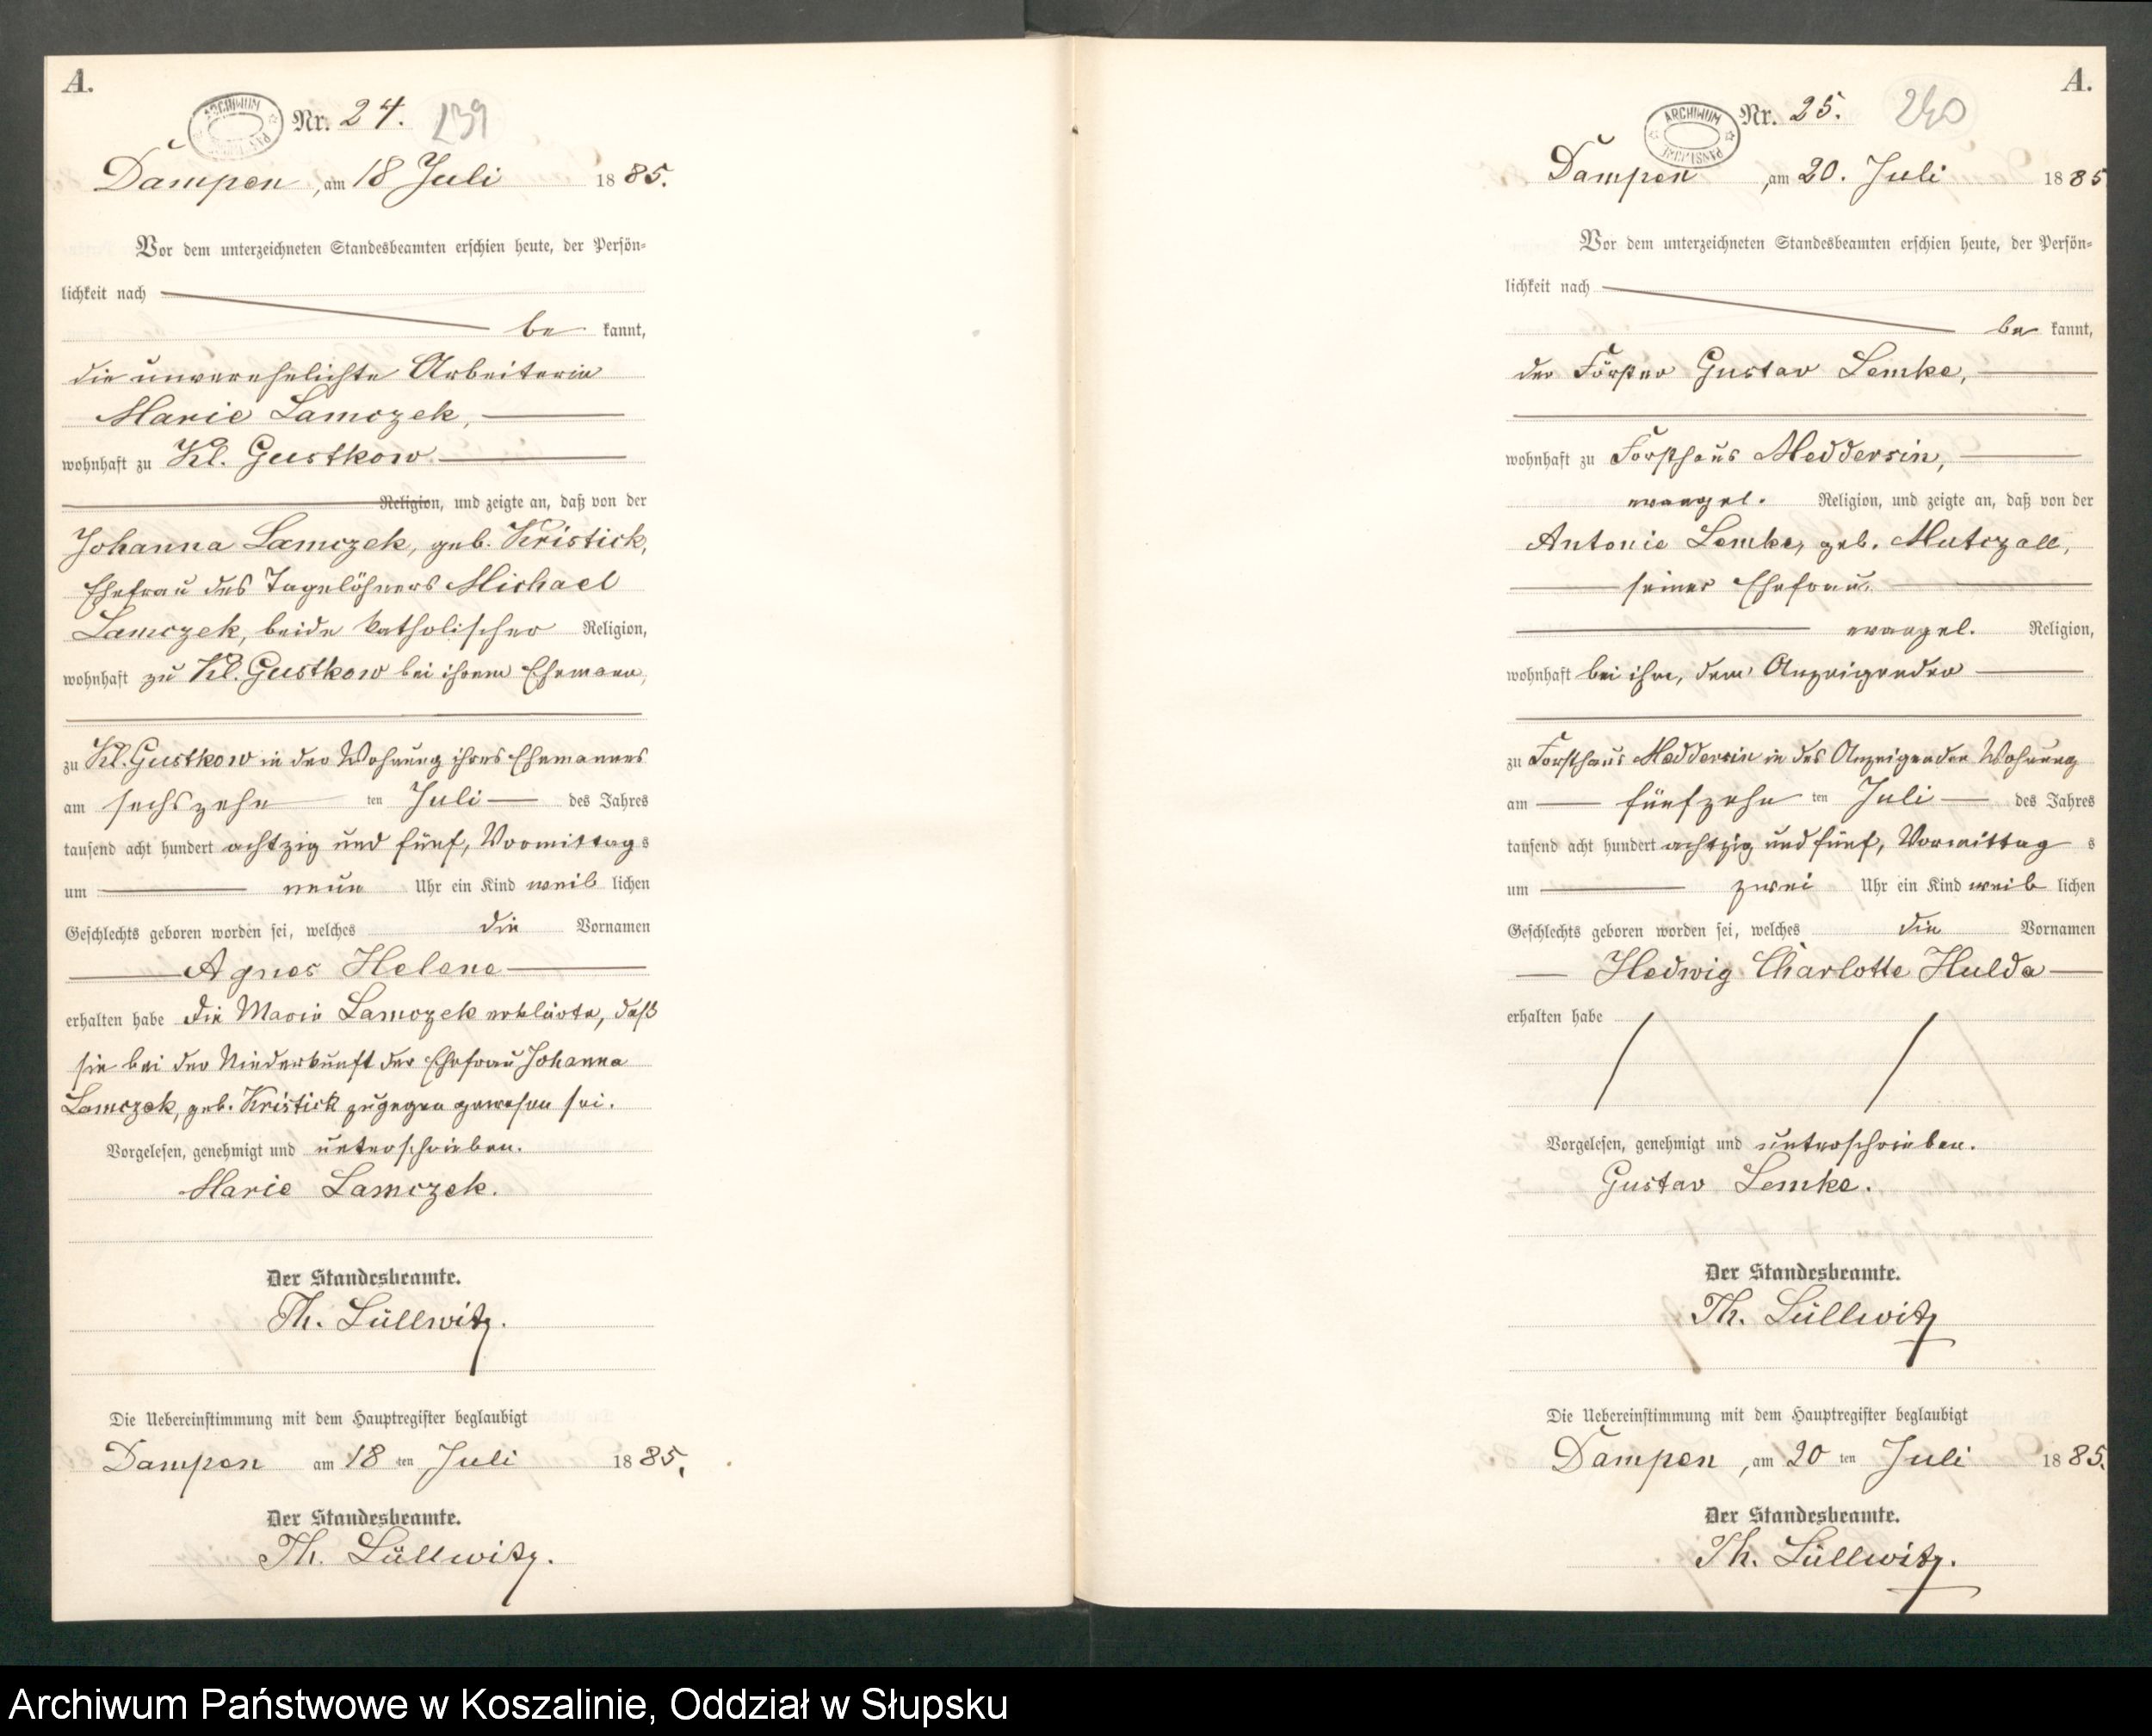 A.
ARCHIWUM
Nr. 24.
239
Dampen, am 18 Juli 1885.
Vor dem unterzeichneten Standesbeamten erschien heute, der Persön-
lichkeit nach
be kannt,
die unverehelichte Arbeiterin
Marie Lamczek,
wohnhaft zu Kl. Gustkow
Religion, und zeigte an, daß von der
Johanna Lamczek, geb. Kristick,
Ehefrau des Tagelöhners Michael
Lamczek, beide katholischer Religion,
wohnhaft zu Kl. Gustkow bei ihrem Ehemann,
zu Kl. Gustkow in der Wohnung ihres Ehemannes
am sechszehn ten Juli des Jahres
tausend acht hundert achtzig und fünf, Vormittags
um neun Uhr ein Kind weiblichen
Geschlechts geboren worden sei, welches die Vornamen
Agnes Helene
erhalten habe Die Marie Lamczek erklärte, daß
sie bei der Niederkunft der Ehefrau Johanna
Lamczek, geb. Kristick zugegen gewesen sei.
Vorgelesen, genehmigt und unterschrieben.
Marie Lamczek.
Der Standesbeamte.
Th. Lüllwitz.
Die Uebereinstimmung mit dem Hauptregister beglaubigt
Dampen am 18 ten Juli 1885.
Der Standesbeamte.
Th. Lüllwitz.
A.
ARCHIWUM
Nr. 25.
240
Dampen, am 20. Juli 1885
Vor dem unterzeichneten Standesbeamten erschien heute, der Persön-
lichkeit nach
be kannt,
der Förster Gustav Lemke,
wohnhaft zu Forsthaus Meddersin,
evangel. Religion, und zeigte an, daß von der
Antonie Lemke, geb. Mutczall,
seiner Ehefrau
evangel. Religion,
wohnhaft bei ihm, dem Anzeigenden
zu Forsthaus Meddersin in des Anzeigenden Wohnung
am fünfzehn ten Juli des Jahres
tausend acht hundert achtzig und fünf, Vormittags
um zwei Uhr ein Kind weiblichen
Geschlechts geboren worden sei, welches die Vornamen
Hedwig Charlotte Hulda
erhalten habe
Vorgelesen, genehmigt und unterschrieben.
Gustav Lemke.
Der Standesbeamte.
Th. Lüllwitz
Die Uebereinstimmung mit dem Hauptregister beglaubigt
Dampen, am 20 ten Juli 1885.
Der Standesbeamte.
Th. Lüllwitz.
Archiwum Państwowe w Koszalinie, Oddział w Słupsku